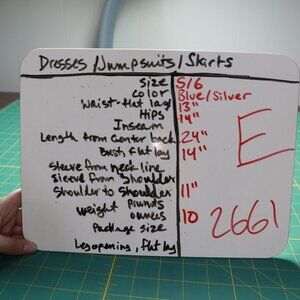 Dresses/Jumpsuits/Skirts
Size 5/6
Color Blue/Silver
Waist-flat lay 13"
Hips 14"
Inseam
Length from Center back 24"
Bust flat lay 14"
Sleeve from neckline
Sleeve from Shoulder
Shoulder to Shoulder 11"
Weight Pounds
ounces 10
Package size
Leg opening, flat lay
E
2661